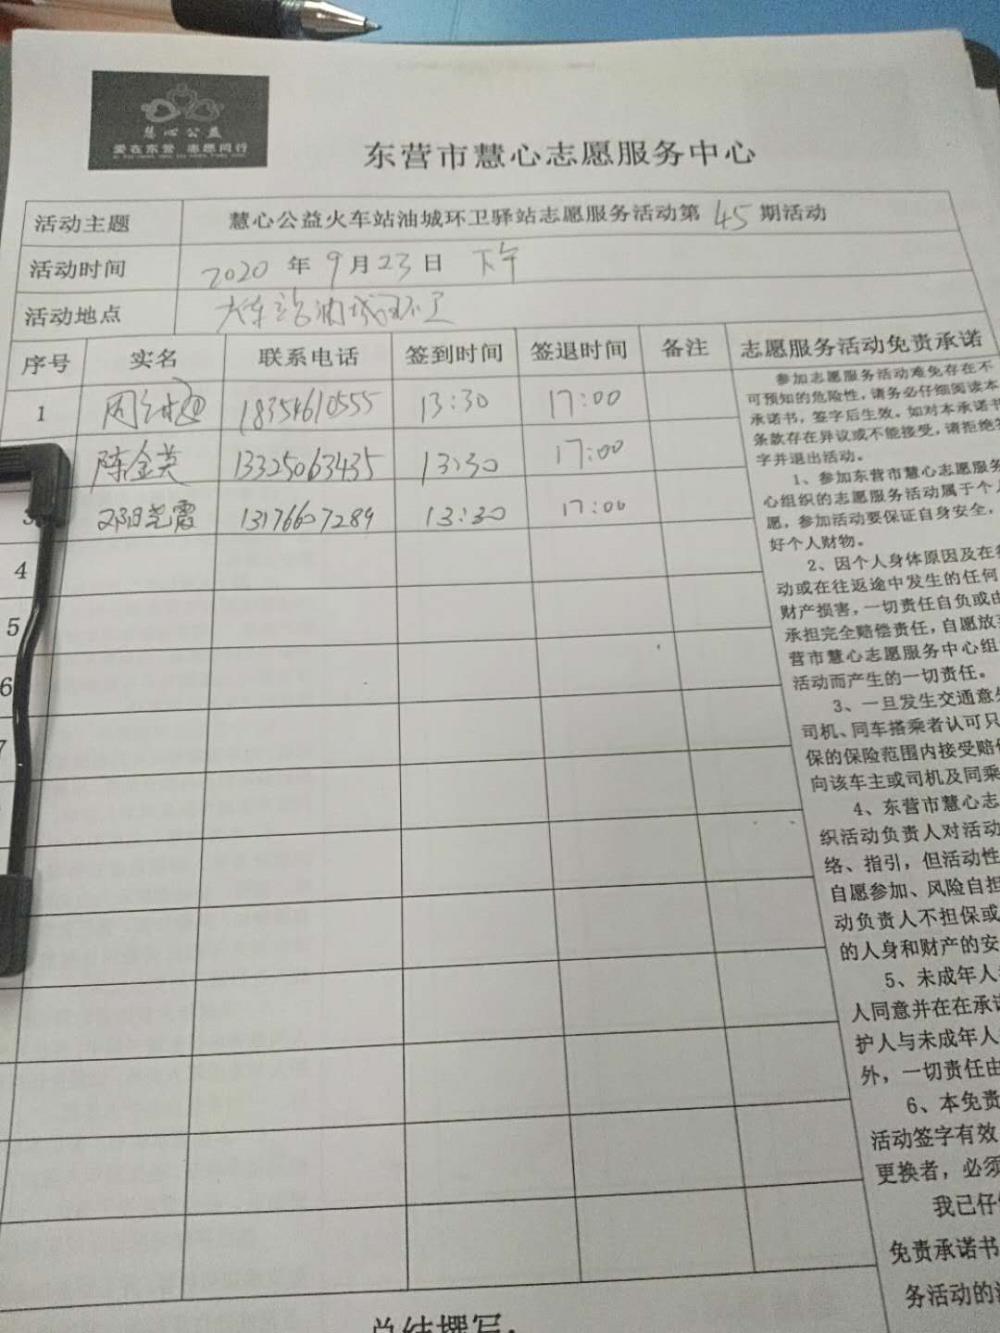 慧心公益
爱在东营 志愿同行
东营市慧心志愿服务中心
活动主题 慧心公益火车站油城环卫驿站志愿服务活动第 45 期活动
活动时间 2020 年 9 月 23 日 下午
活动地点 火车站油城环卫
序号 实名 联系电话 签到时间 签退时间 备注 志愿服务活动免责承诺
1 18354610555 13:30 17:00
陈金英 13325063435 13:30 17:00
3 邓晓霞 13176607289 13:30 17:00
4
5
6
7
参加志愿服务活动难免存在不
可预知的危险性，请务必仔细阅读本
承诺书，签字后生效。如对本承诺书
条款存在异议或不能接受，请拒绝签
字并退出活动。
1、参加东营市慧心志愿服务
心组织的志愿服务活动属于个人
愿，参加活动要保证自身安全，
好个人财物。
2、因个人身体原因及在往
动或在往返途中发生的任何
财产损害，一切责任自负或由
承担完全赔偿责任，自愿放弃
营市慧心志愿服务中心组
活动而产生的一切责任。
3、一旦发生交通意外
司机、同车搭乘者认可只
保的保险范围内接受赔偿
向该车主或司机及同乘
4、东营市慧心志
织活动负责人对活动
络、指引，但活动性
自愿参加、风险自担
动负责人不担保或
的人身和财产的安
5、未成年人
人同意并在在承诺
护人与未成年人
外，一切责任由
6、本免责
活动签字有效
更换者，必须
我已仔细
免责承诺书
务活动的
总结撰写：